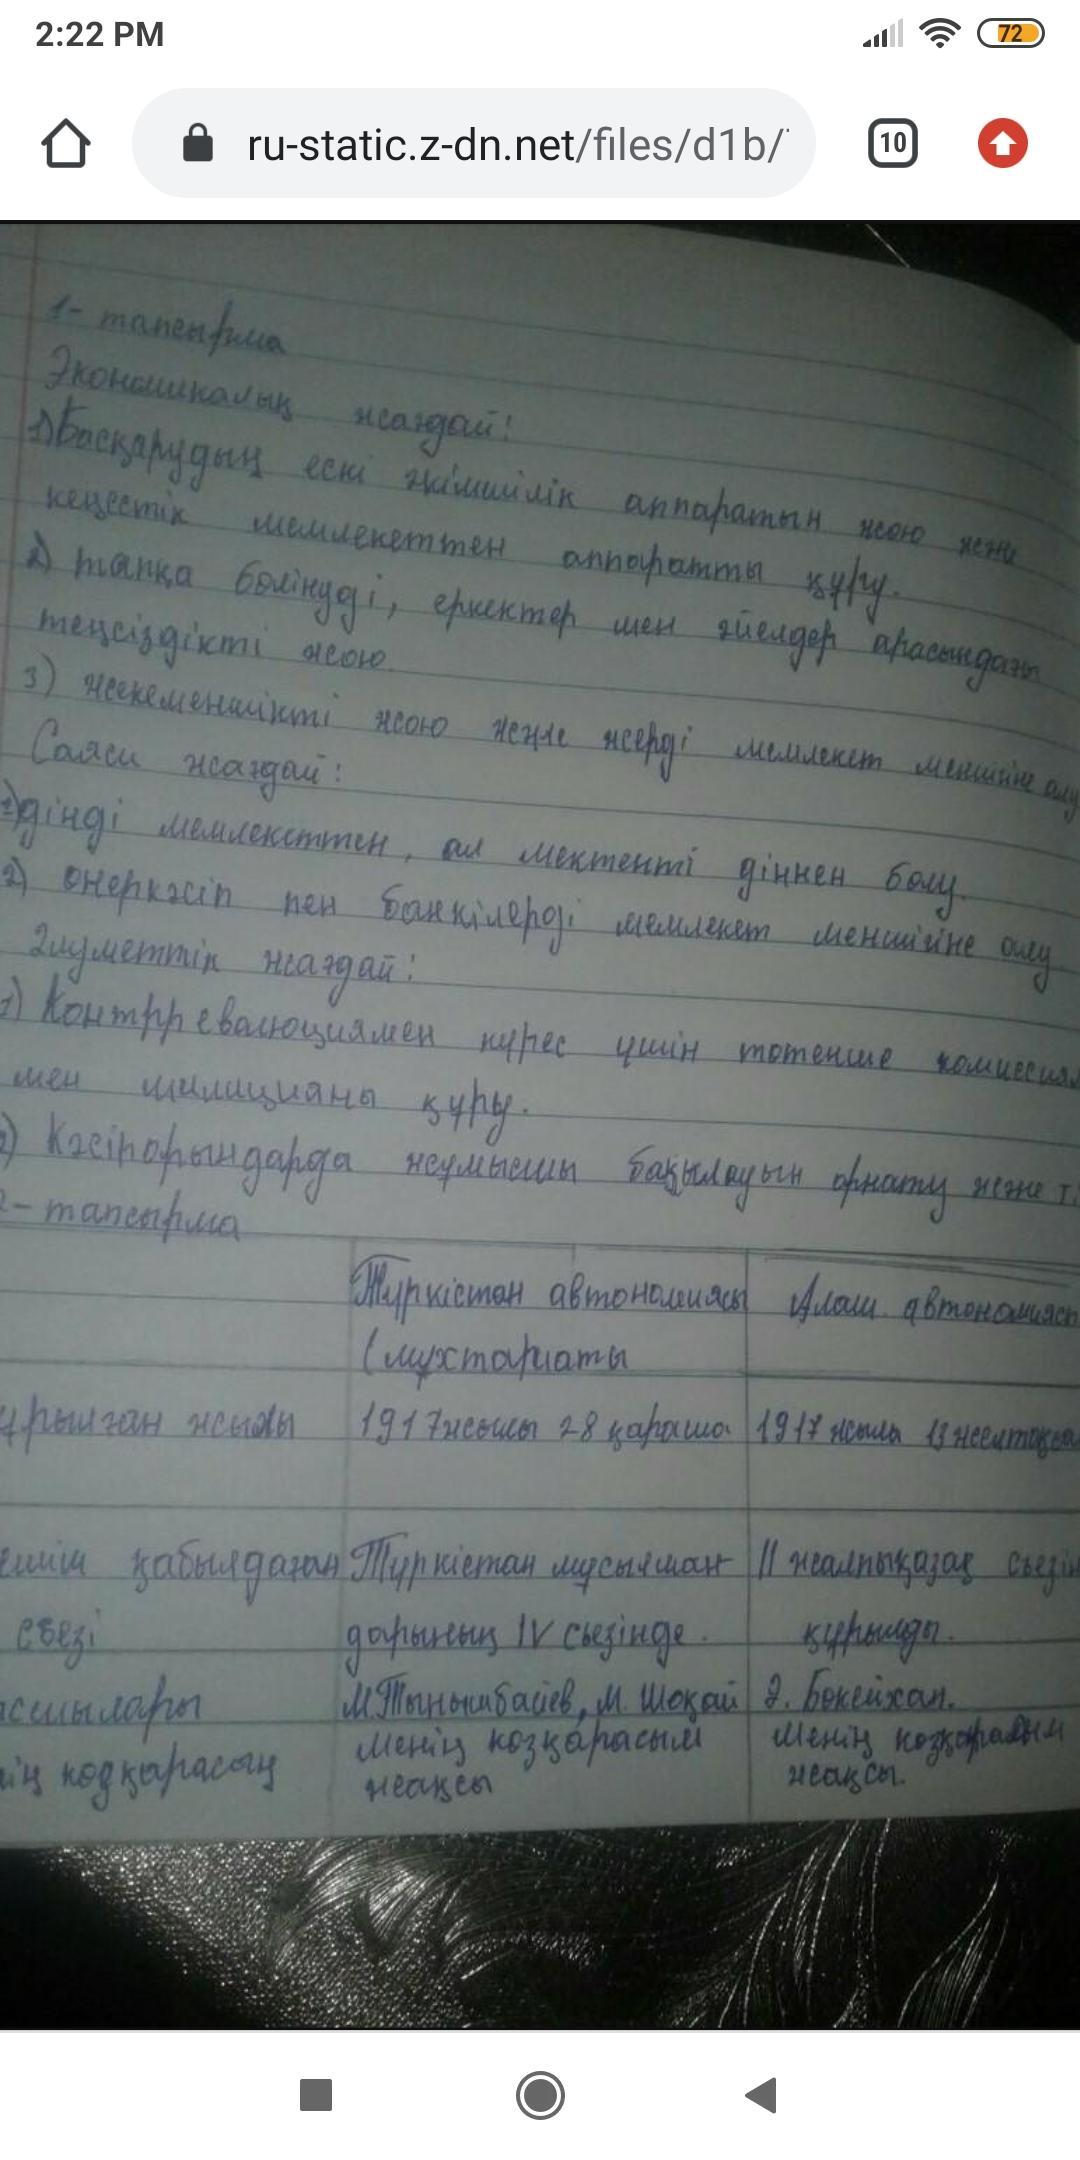 2:22 PM
72
ru-static.z-dn.net/files/d1b/
10
1- тапсырма
Экономикалық жағдай:
1) Басқарудың ескі әкімшілік аппаратын жою және
кеңестік мемлекеттен аппаратты құру.
2) тапқа бөлінуді, еркектер мен әйелдер арасындағы
теңсіздікті жою.
3) жекеменшікті жою және жерді мемлекет меншігіне алу
Саяси жағдай:
1) дінді мемлекеттен, ал мектепті діннен бөлу.
2) өнеркәсіп пен банкілерді мемлекет меншігіне алу
Әлуметтік жағдай:
1) Контрреволюциямен күрес үшін төтенше комиссия
мен милицияны құру.
2) Кәсіпорындарда жұмысшы бақылауын орнату және т.
2- тапсырма
Түркістан автономиясы Алаш автономиясы
(мұхтариаты
ұрылған жылы 1917 жылы 28 қараша 1917 жылы 13 желтоқсан
ешім қабылдаған Түркістан мұсылман II жалпықазақ сьезін
сьезі дарының IV сьезінде. құрылды.
асшылары М.Тынышбаев, М. Шоқай Ә. Бөкейхан.
ің көзқарасың Менің көзқарасым Менің көзқарасым
жақсы жақсы.